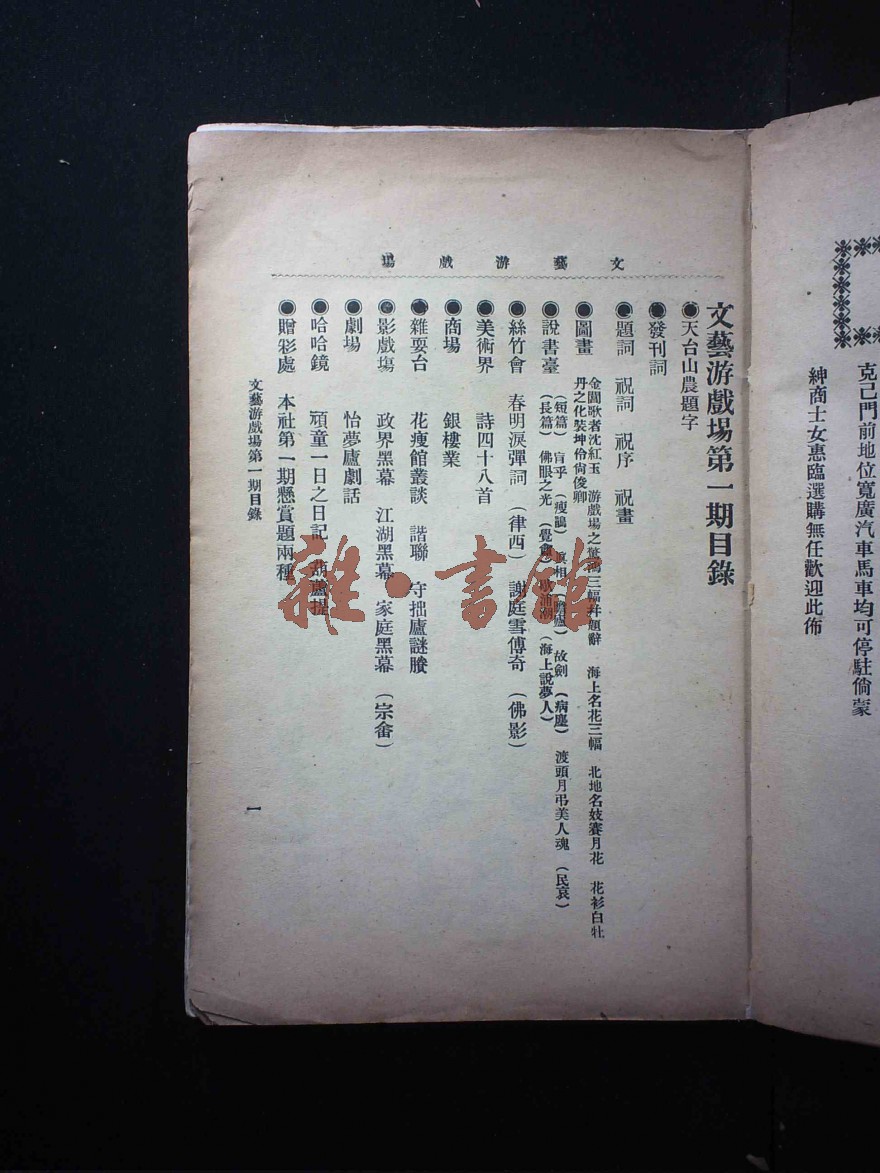 克己門前地位寬廣汽車馬車均可停駐倘蒙
紳商士女惠臨選購無任歡迎此佈
文藝游戲場
文藝游戲場第一期目錄
◉天台山農題字
◉發刊詞
◉題詞 祝詞 祝序 祝畫
◉圖畫 金閶歌者沈紅玉 游戲場之 三幅并題辭 海上名花三幅 北地名妓賽月花 花衫白牡
丹之化裝坤伶尙俊卿
◉說書臺 (短篇) 盲乎 (瘦鵑) 眞相 故劍 (病塵) 渡頭月弔美人魂 (民哀)
(長篇) 佛眼之光 (海上說夢人)
◉絲竹會 春明淚彈詞 (律西) 謝庭雪傳奇 (佛影)
◉美術界 詩四十八首
◉商場 銀樓業
◉雜耍台 花瘦館叢談 諧聯 守拙廬謎賸
◉影戲塲 政界黑幕 江湖黑幕 家庭黑幕 (宗畬)
◉劇場 怡夢廬劇話
◉哈哈鏡 頑童一日之日記 葫蘆提
◉贈彩處 本社第一期懸賞題兩種
文藝游戲場第一期目錄
一
雜·書館